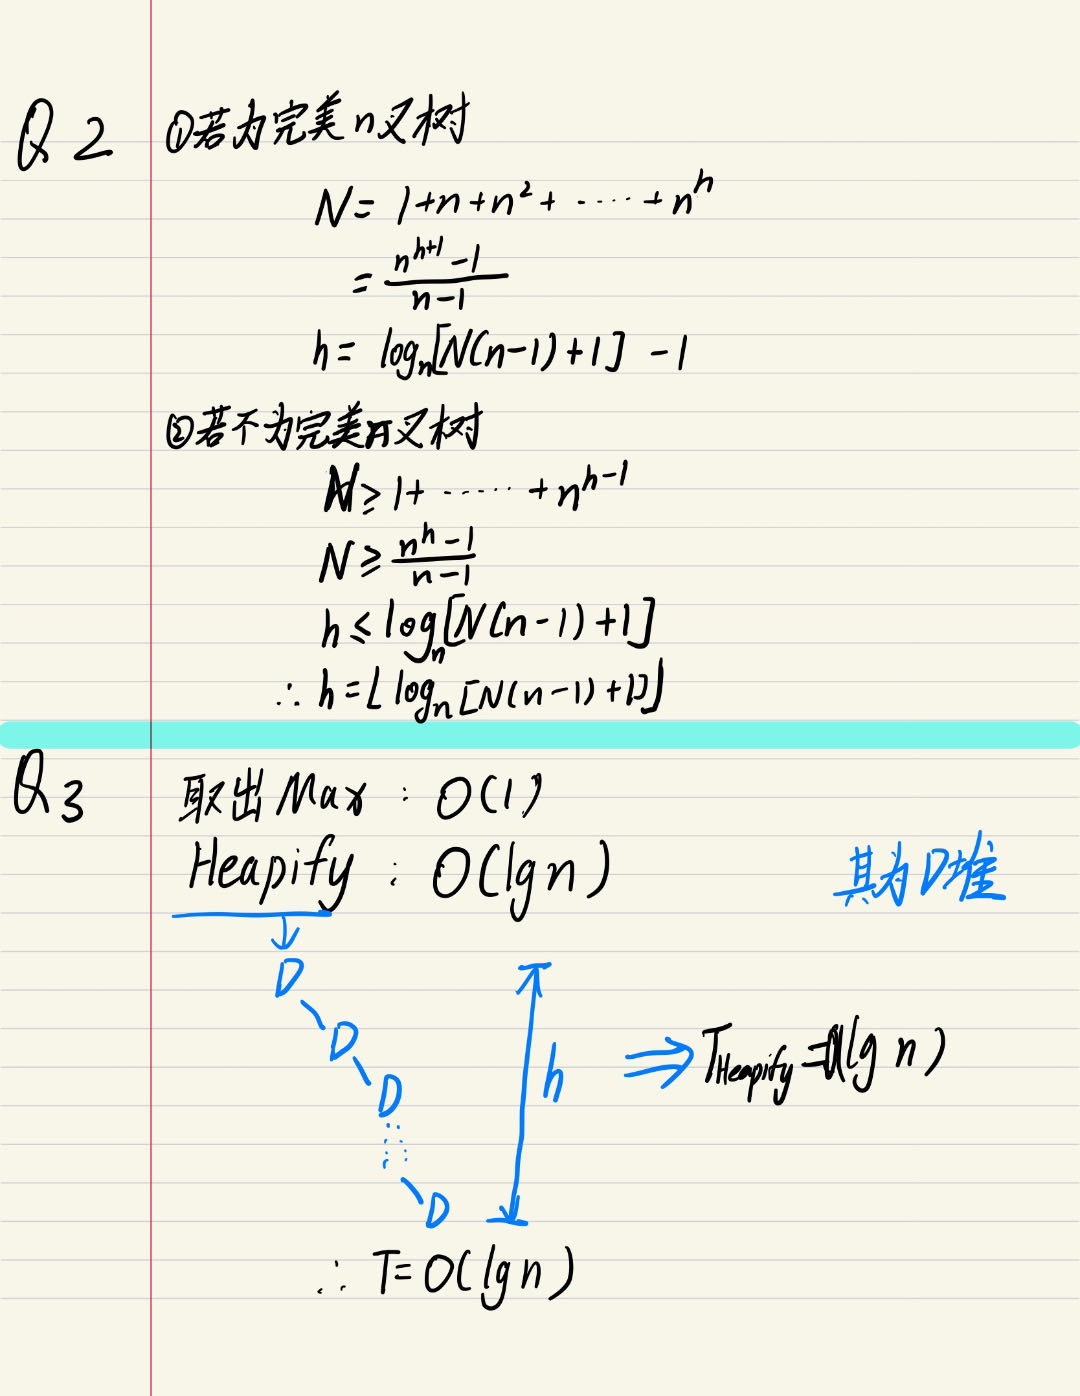 Q2 ①若为完美n叉树
N= 1+n+n²+ ······ + n^h
= (n^(h+1) -1)/(n-1)
h= log_n[N(n-1)+1] -1
②若不为完美n叉树
N≥ 1+ ······ + n^(h-1)
N≥ (n^h -1)/(n-1)
h≤ log_n[N(n-1)+1]
∴ h=⌊log_n[N(n-1)+1]⌋
Q3 取出Max : O(1)
Heapify : O(lgn)
其为D堆
D
D
D
D
h
⇒ T_Heapify=O(lg n)
∴ T=O(lgn)